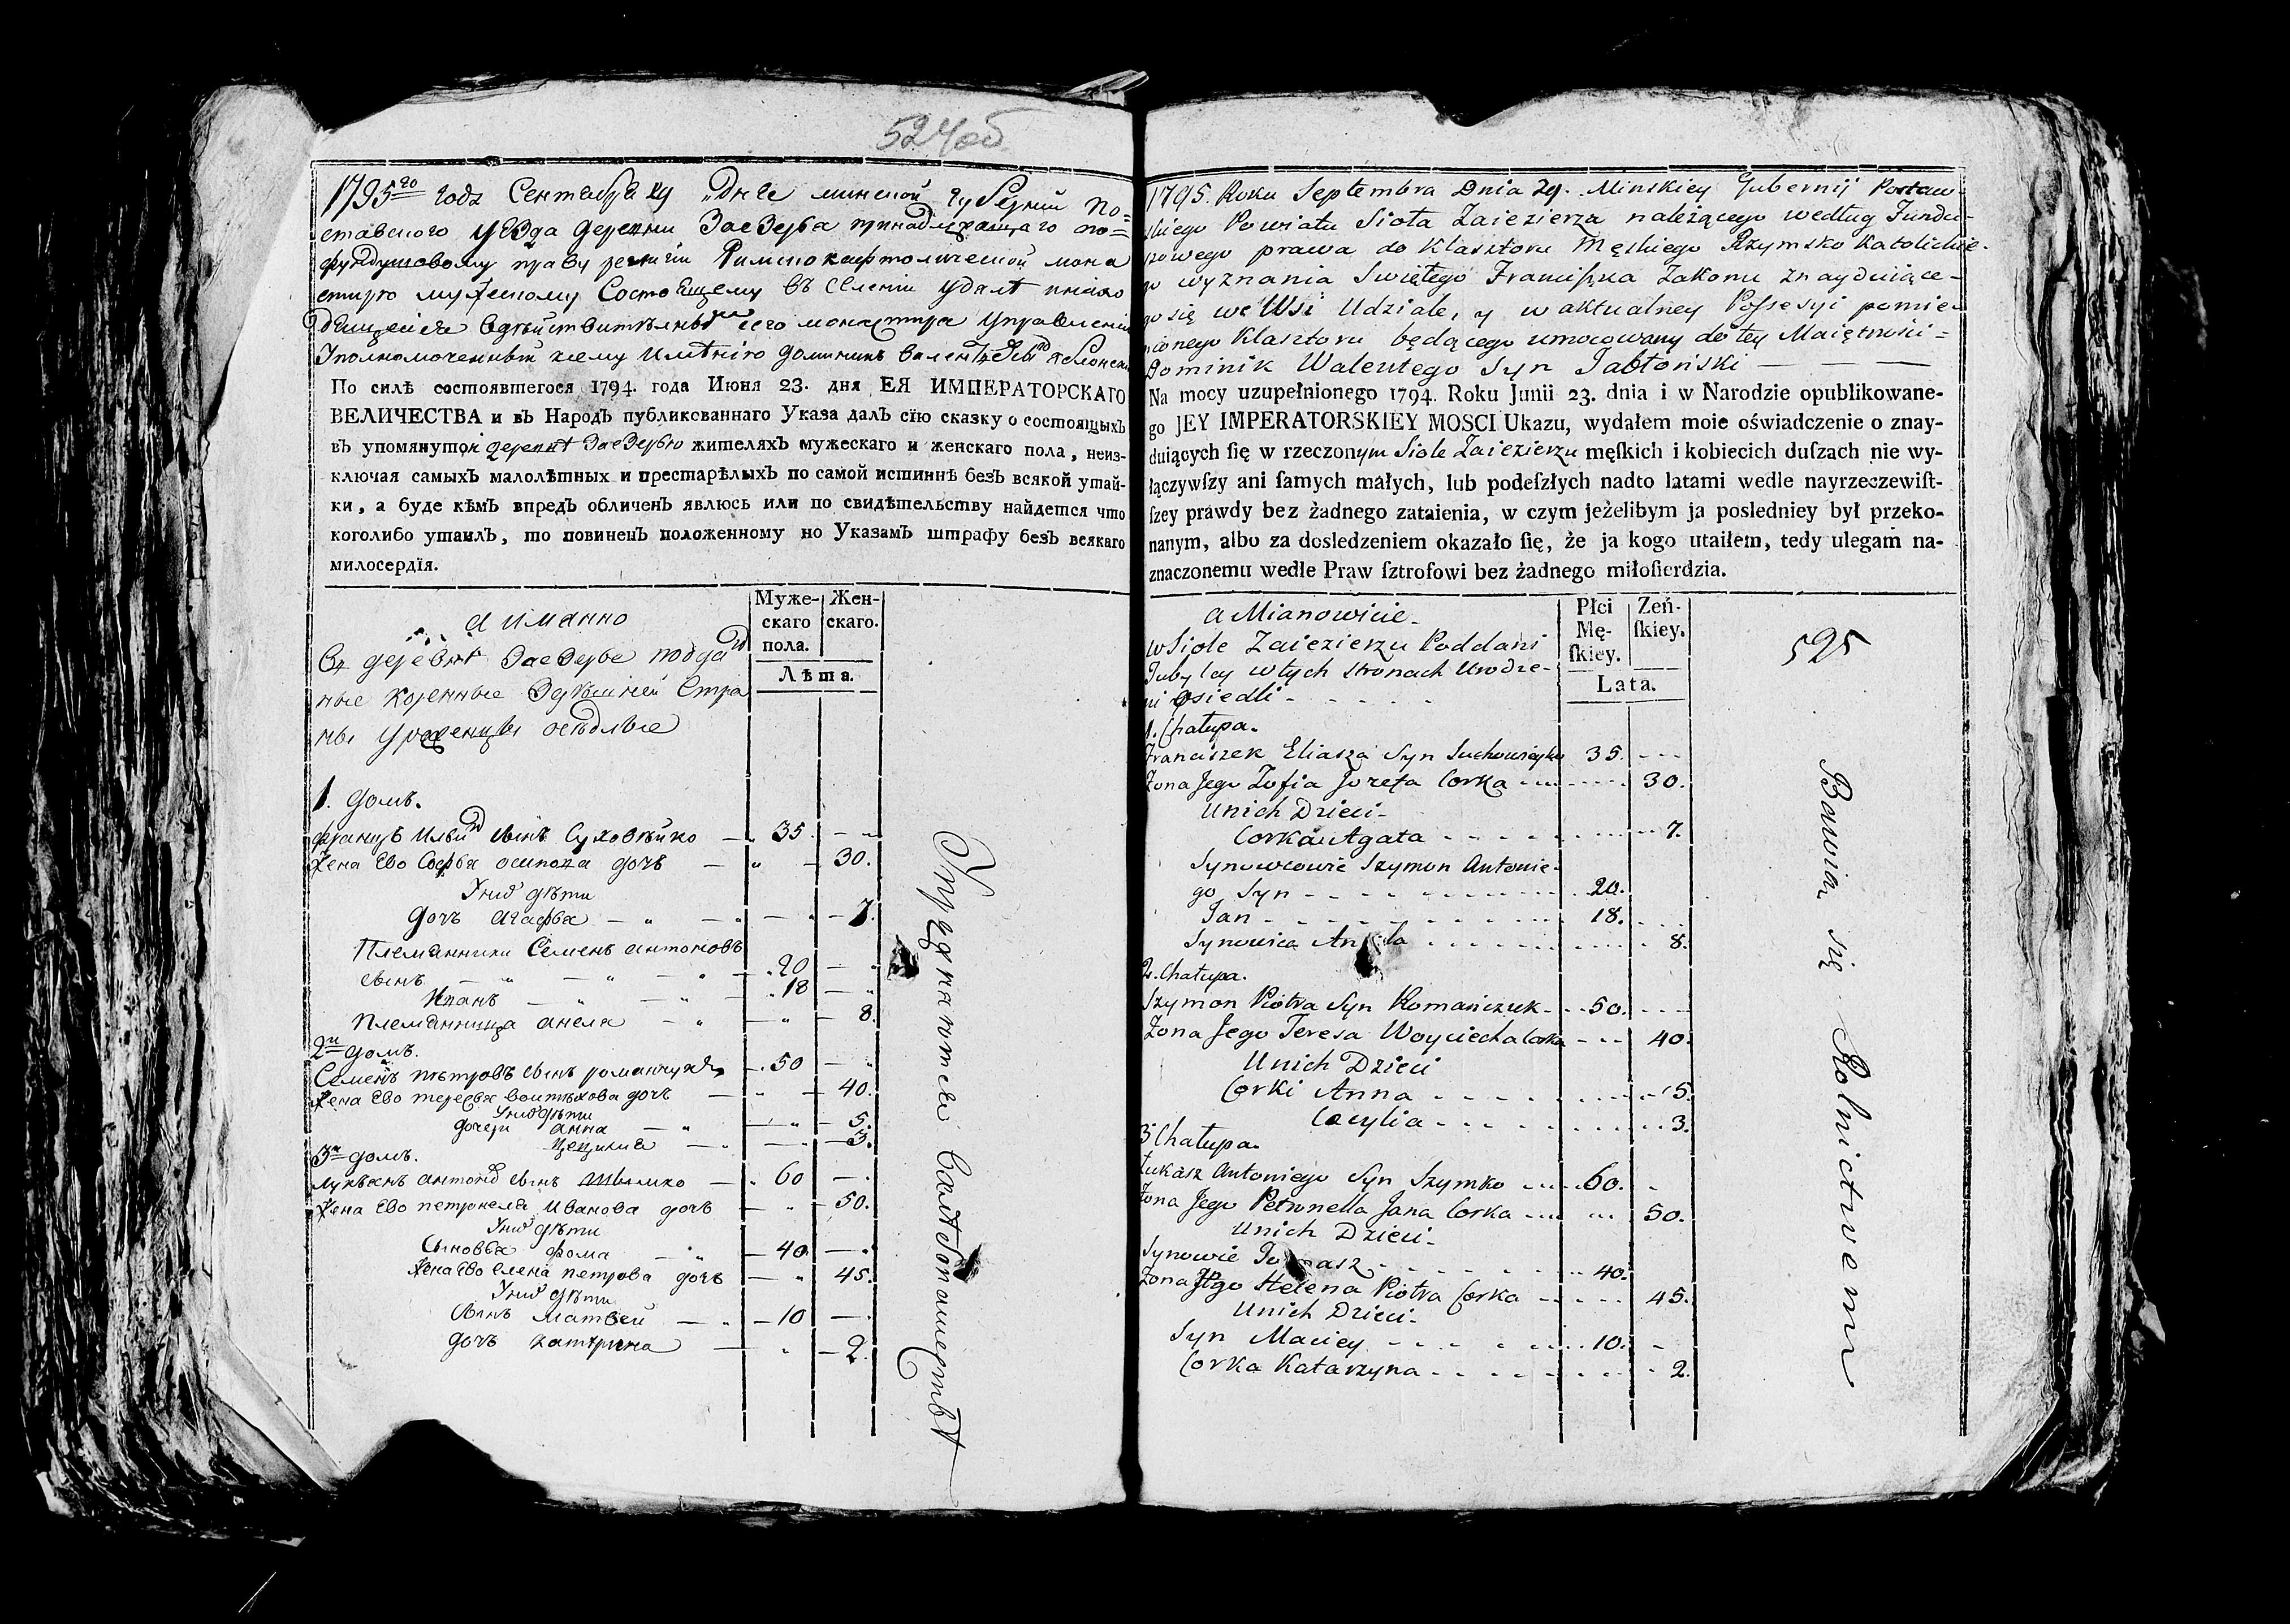 524об
1795го года Сентября 29 Дня минской губерний По=
ставского уезда деревни Заезерья принадлежащего по=
фундушовому праву религии Римнокафтолической мона
стирю мужескому Состоящему въ селении удале
сего монастира управлении
Уполномоченный к сему имению доминикъ
По силѣ состоявшегося 1794. года Июня 23. дня ЕЯ ИМПЕРАТОРСКАГО
ВЕЛИЧЕСТВА и въ Народъ публикованнаго Указа далъ сїю сказку о состоящыхъ
въ упомянутой деревнѣ Заезерью жителяхъ мужескаго и женскаго пола, неиз-
ключая самыхъ малолѣтных и престарѣлыхъ по самой истиннѣ безъ всякой утай-
ки, а буде кѣмъ впредь обличенъ явлюсь или по свидѣтельству найдется что
коголибо утаилъ, то повиненъ положенному по Указамъ штрафу безъ всякаго
милосердїя.
а иманно
Муже-скаго пола. Жен-скаго.
Лѣта.
Въ деревнѣ Заезерье подда
ные коренные Здѣшней Стра
ны уроженцы осѣдлые
1. домъ.
францъ Ильи сынъ Суховѣйко 35
Жена Ево Софья осипова дочь 30.
У них дѣти
дочь агафья 7.
Племянники Семенъ антоновъ
сынъ 20
Иванъ 18
племянница анеля 8.
2й домъ.
Семенъ петровъ сынъ романчукъ 50
Жена Ево тереса воитѣхова дочь 40.
У них дѣти
дочери анна 5.
цецилия 3.
3й домъ.
лукьянъ антонов сынъ шимко 60
Жена Ево петронеля Иванова дочь 50.
У них дѣти
Сыновья фома 40.
Жена Ево елена петрова дочь 45.
У них дѣти
Сынъ матвеи 10
дочь катерина 2.
Упражняются въ хлебопашертве
1795. Roku Septembra Dnia 29. Minskiey Gubernij Postaw-
skiego Powiatu Sioła Zaiezierza należącego według Fundu-
szowego prawa do Klasztoru Męskiego Rzymsko Katolickie-
go wyznania Swiętego Franciszka Zakonu znayduiące-
go się we Wsi Udziale, y w aktualney Possesyi pomie-
nionego Klasztoru będącego umocowany do tey Maiętnosci =
Dominik Walentego Syn Jabłoński
Na mocy uzupełnionego 1794. Roku Junii 23. dnia i w Narodzie opublikowane-
go JEY IMPERATORSKIEY MOSCI Ukazu, wydałem moie oświadczenie o znay-
duiących ſię w rzeczonym Siole Zaiezierzu męſkich i kobiecich duſzach nie wy-
łączywſzy ani ſamych małych, lub podeſzłych nadto latami wedle nayrzeczewiſt-
ſzey prawdy bez żadnego zataienia, w czym jeżelibym ja posledniey był przeko-
nanym, albo za dosledzeniem okazało ſię, że ja kogo utaiłem, tedy ulegam na-
znaczonemu wedle Praw ſztrofowi bez żadnego miłoſierdzia.
a Mianowicie
Płci Mę-ſkiey. Zeń-ſkiey.
Lata.
w Siole Zaiezierzu Poddani
Tubylcy w tych stronach Urodze-
ni Osiedli
1. Chałupa.
Franciszek Eliasza Syn Suchowieyko 35.
Zona Jego Zofia Jozefa Corka 30.
Unich Dzieci
Corka Agata 7.
Synowcowie Szymon Antonie-
go Syn 20.
Jan 18.
Synowica Aniela 8.
2. Chałupa.
Szymon Piotra Syn Romańczuk 50.
Zona Jego Teresa Woyciecha Corka 40.
Unich Dzieci
Corki Anna 5.
Cecylia 3.
3 Chałupa.
Łukasz Antoniego Syn Szymko 60.
Zona Jego Petronella Jana Corka 50.
Unich Dzieci
Synowie Tomasz 40.
Zona Jego Helena Piotra Corka 45.
Unich Dzieci
Syn Maciey 10.
Corka Katarzyna 2.
525
Bawią się Rolnictwem